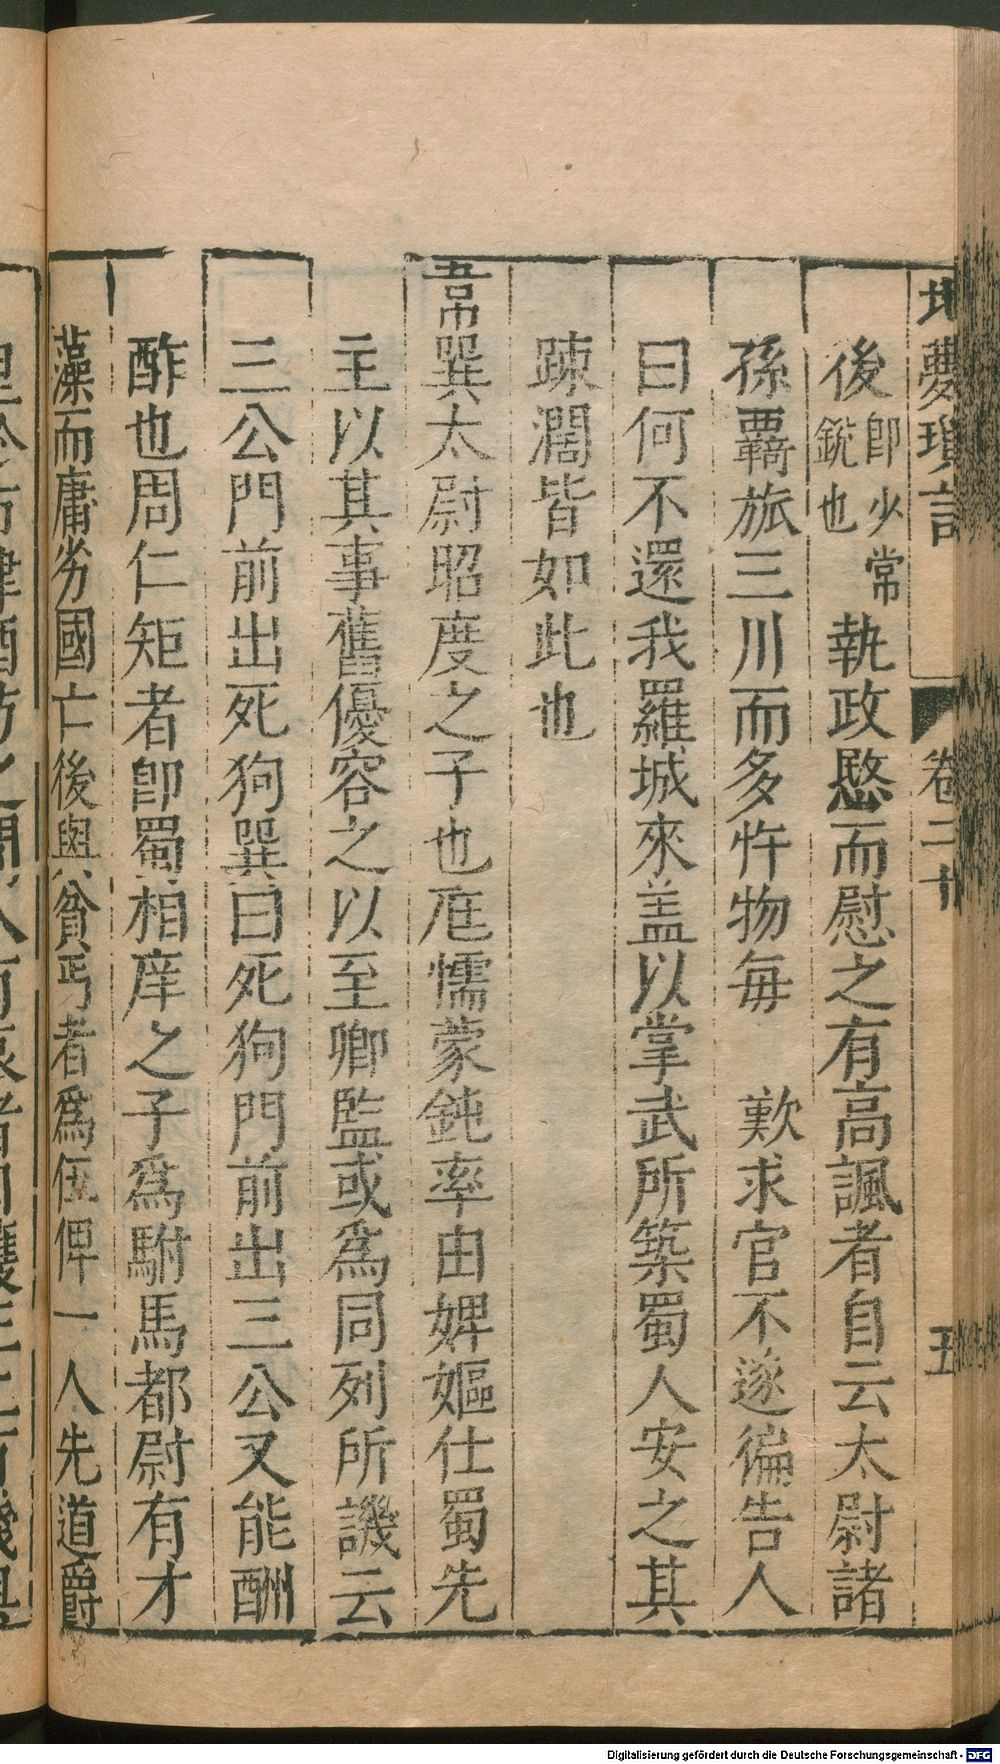 北夢瑣言 卷二十 五
後即少常銳也執政愍而慰之有高諷者自云太尉諸
孫覉旅三川而多忤物毎 歎求官不遂徧告人
曰何不還我羅城來盖以掌武所築蜀人安之其
踈濶皆如此也
韋巽太尉昭度之子也尫懦蒙鈍率由婢嫗仕蜀先
主以其事舊優容之以至卿監或爲同列所譏云
三公門前出死狗巽曰死狗門前出三公又能酬
酢也周仁矩者卽蜀相庠之子爲駙馬都尉有才
藻而庸劣國亡後與貧丐者爲伍俾一人先道爵
Digitalisierung gefördert durch die Deutsche Forschungsgemeinschaft - DFG